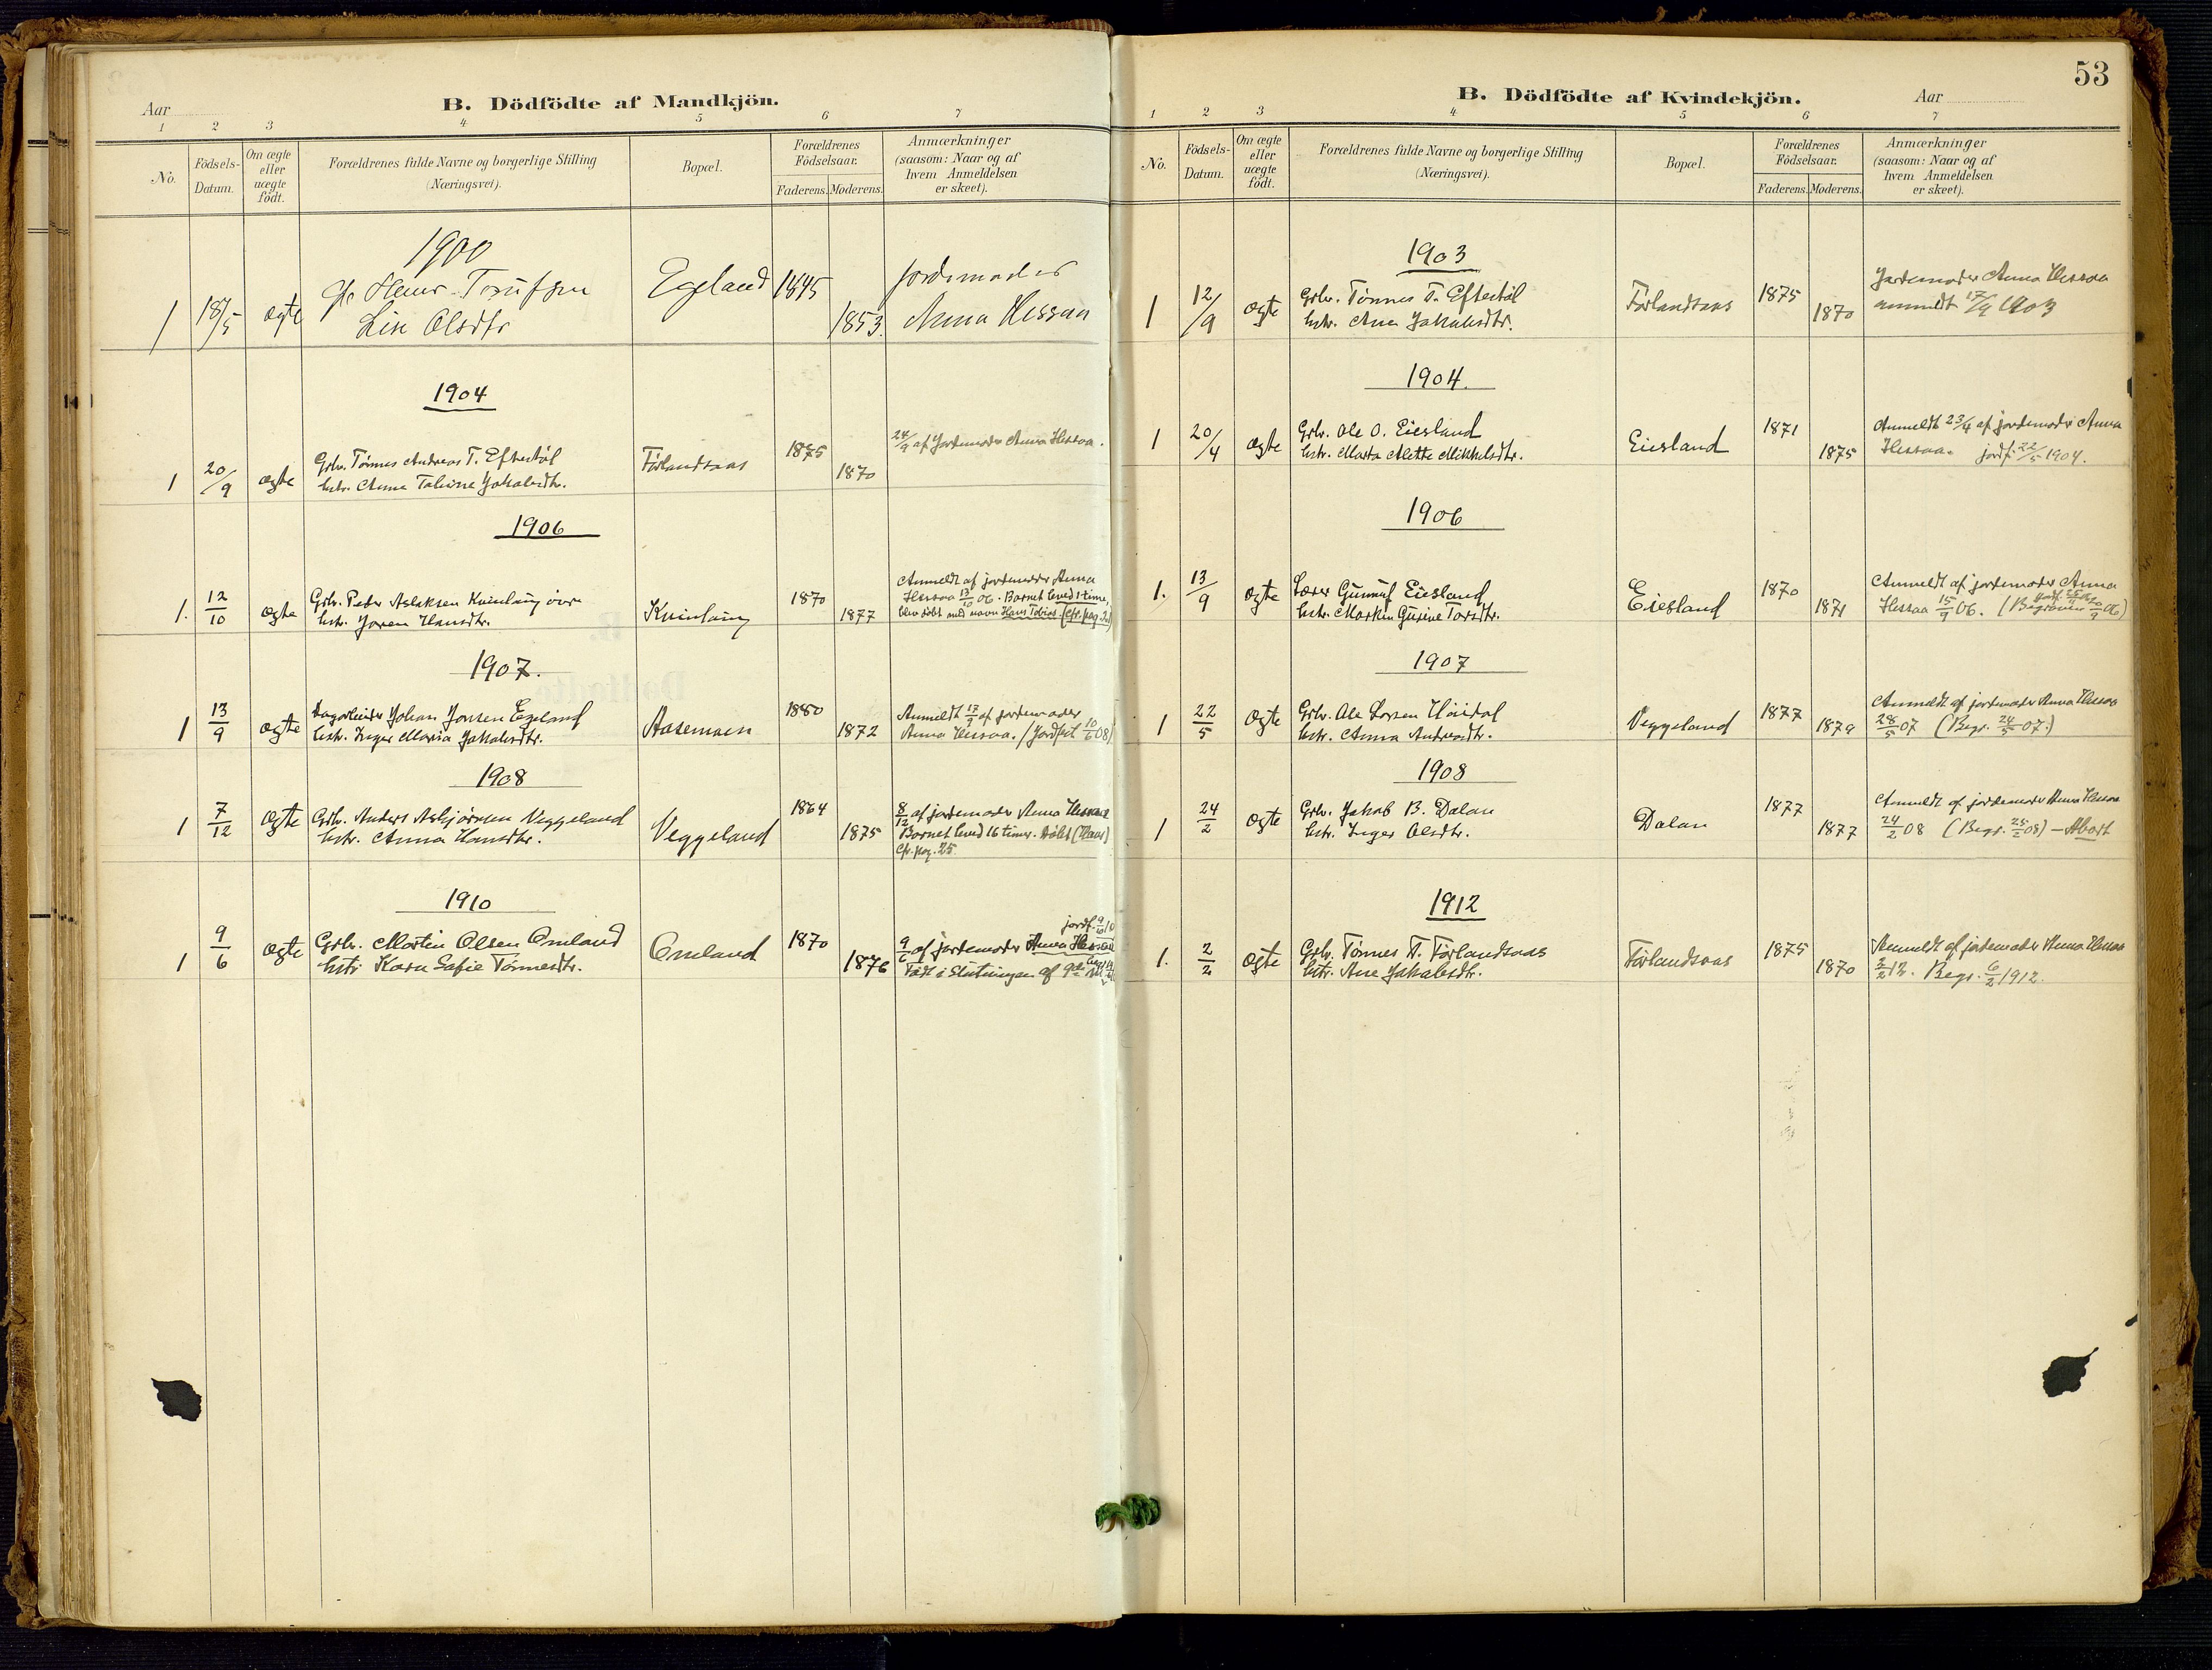 B. Dödfödte af Mandkjön.
Aar
1 2 3 4 5 6 7
No.
Födsels-Datum.
Om ægte eller uægte födt.
Forældrenes fulde Navne og borgerlige Stilling
(Næringsvei).
Bopæl.
Forældrenes Födselsaar.
Faderens. Moderens.
Anmærkninger
(saasom: Naar og af
hvem Anmeldelsen
er skeet).
1900
1 18/5 ægte
Lise Olsdtr
Egeland 1845
1853.
Jordemoder
Anna Hessaa
1904
1 20/9 ægte
Grbr. Tønnes Andreas T. Eftestøl
hstr. Anne Taline Jakobsdtr.
Førlandsaas 1875
1870
24/9 af Jordemoder Anna Hessaa.
1906
1. 12/10 ægte
Grbr. Peder Aslaksen Kvinlaug øvre
hstr. Joren Hansdtr.
Kvinlaug 1870
1877
Anmeldt af jordemoder Anna
Hessaa 13/10 06. Barnet leved 1 time,
blev døbt med navn Hans Tobias. (cfr. pag
1907.
1 13/9 ægte
Dagarbeider Johan Jonsen Egeland
hstr. Inger Maria Jakobsdtr.
Aasemoen 1880
1872
Anmeldt 17/9 af jordemoder
Anna Hessaa. (Jordfest 10/6 08)
1908
1 7/12 ægte
Grbr. Anders Asbjørnsen Veggeland
hstr. Anna Hansdtr.
Veggeland 1864
1875
8/12 af jordemoder Anna Hessaa
Barnet leved 16 timer. døbt (Hans)
Cfr. pag. 25.
1910
1 9/6 ægte
Grbr. Martin Olsen Omland
hstr. Karn Sofie Tønnesdtr.
Omland 1870
1876
jordf.
9/6 af jordemoder Anna Hessaa
Født i Slutningen af 9de
53
B. Dödfödte af Kvindekjön.
Aar
1 2 3 4 5 6 7
No.
Födsels-Datum.
Om ægte eller uægte födt.
Forældrenes fulde Navne og borgerlige Stilling
(Næringsvei).
Bopæl.
Forældrenes Födselsaar.
Faderens. Moderens.
Anmærkninger
(saasom: Naar og af
hvem Anmeldelsen
er skeet).
1903
1 12/9 ægte
Grbr. Tønnes T. Eftestøl
hstr. Ane Jakobsdtr.
Førlandsaas 1875
1870
Jordemoder Anna Hessaa
anmeldt 17/9 1903
1904.
1 20/4 ægte
Grbr. Ole O. Eiesland
hstr. Marta Mette Mikkelsdtr.
Eiesland 1871
1875
Anmeldt 23/4 af jordemoder Anna
Hessaa. jordf. 22/5 1904.
1906
1. 13/9 ægte
Lærer Gunnuf Eiesland
hstr. Marken Gurine Torsdtr.
Eiesland 1870
1871
Anmeldt af jordemoder Anna
Hessaa 15/9 06. (Begraven
1907
1 22/5 ægte
Grbr. Ole Larsen Høidal
hstr. Anna Andreasdtr.
Veggeland 1877
1879
Anmeldt af jordemoder Anna Hessaa
28/5 07 (Begr. 24/5 07.)
1908
1 24/2 ægte
Grbr. Jakob B. Dalan
hstr. Inger Olsdtr.
Dalan 1877
1877
Anmeldt af jordemoder Anna Hessaa
24/2 08 (Begr. 25/2 08) - Abort
1912
1. 2/2 ægte
Grbr. Tønnes T. Førlandsaas
hstr. Ane Jakobsdtr.
Førlandsaas 1875
1870
Anmeldt af jordemoder Anna Hessaa
3/2 12. Begr. 6/2 1912.